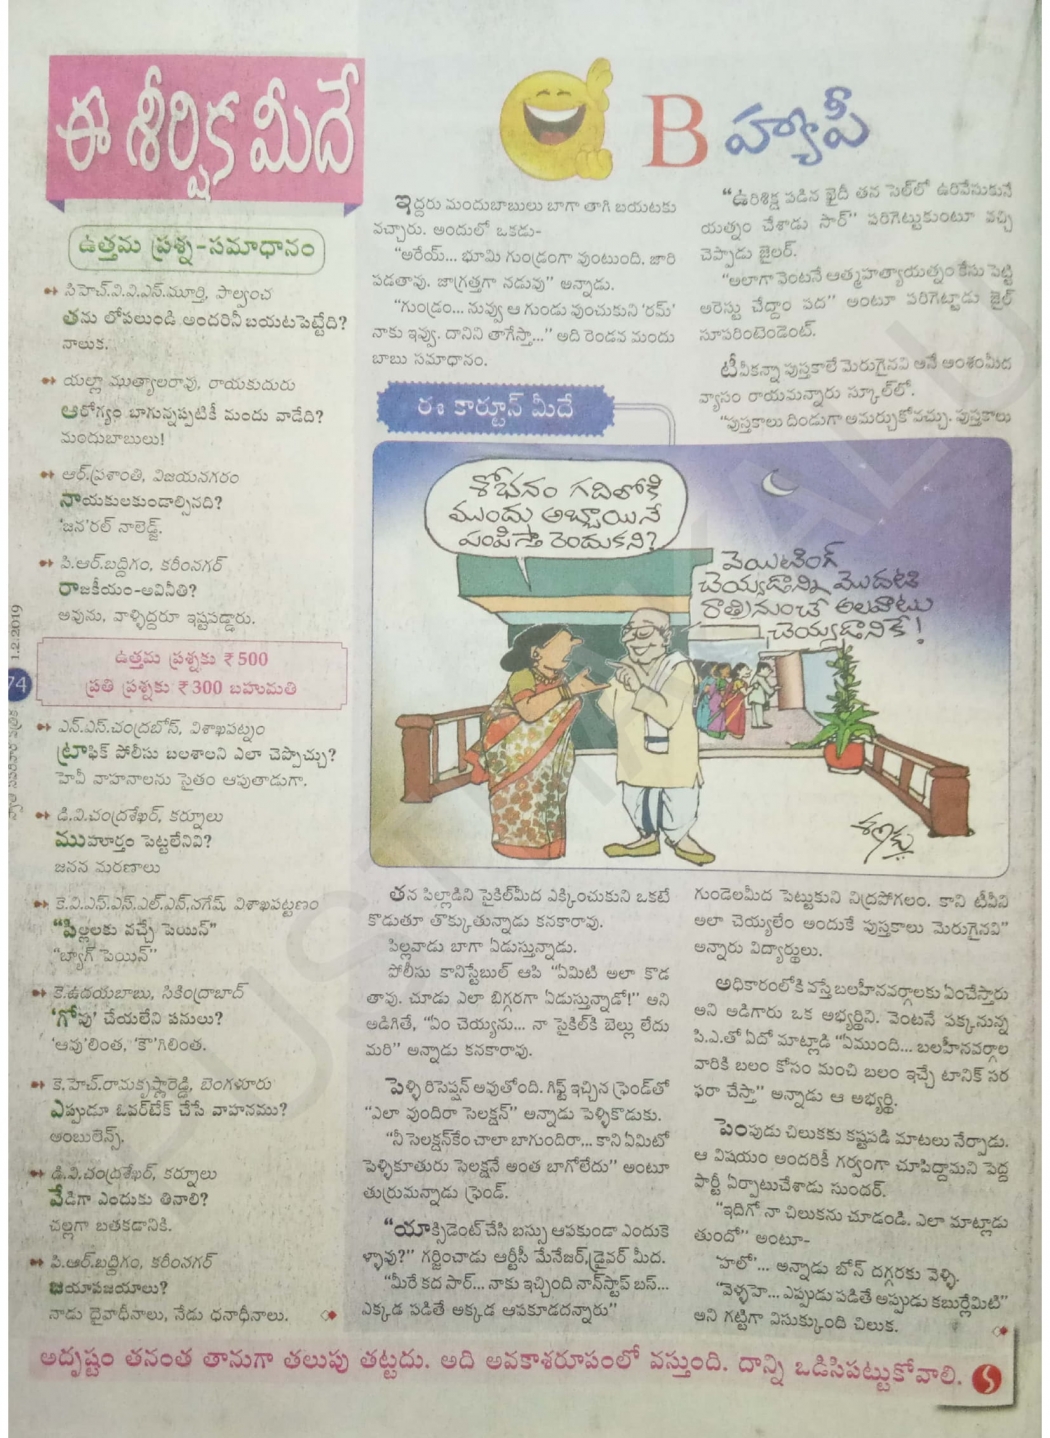 ఈ శీర్షిక మీదే
ఉత్తమ ప్రశ్న-సమాధానం
సిహెచ్.వి.వి.ఎన్.మూర్తి, పాల్వంచ
తను లోపలుండి అందరినీ బయటపెట్టేది?
నాలుక.
యల్లా ముత్యాలరావు, రాయకుదురు
ఆరోగ్యం బాగున్నప్పటికీ మందు వాడేది?
మందుబాబులు!
ఆర్.ప్రశాంతి, విజయనగరం
నాయకులకుండాల్సినది?
'జన'రల్ నాలెడ్జ్.
పి.ఆర్.బద్దిగం, కరీంనగర్
రాజకీయం-అవినీతి?
అవును, వాళ్ళిద్దరూ ఇష్టపడ్డారు.
ఉత్తమ ప్రశ్నకు ₹ 500
ప్రతి ప్రశ్నకు ₹ 300 బహుమతి
ఎన్.ఎస్.చంద్రబోస్, విశాఖపట్నం
ట్రాఫిక్ పోలీసు బలశాలని ఎలా చెప్పొచ్చు?
హెవీ వాహనాలను సైతం ఆపుతాడుగా.
డి.వి.చంద్రశేఖర్, కర్నూలు
ముహూర్తం పెట్టలేనివి?
జనన మరణాలు
కె.వి.ఎఫ్.ఎస్.ఎల్.ఎన్.నగేష్, విశాఖపట్టణం
"పిల్లలకు వచ్చే పెయిన్"
"బ్యాగ్ పెయిన్"
కె.ఉదయబాబు, సికింద్రాబాద్
'గోపు' చేయలేని పనులు?
'ఆవు'లింత, 'కౌ'గిలింత.
కె.హెచ్.రామకృష్ణారెడ్డి, బెంగళూరు
ఎప్పుడూ ఓవర్‌టేక్ చేసే వాహనము?
అంబులెన్స్.
డి.వి.చంద్రశేఖర్, కర్నూలు
వేడిగా ఎందుకు తినాలి?
చల్లగా బతకడానికి.
పి.ఆర్.బద్దిగం, కరీంనగర్
జయాపజయాలు?
నాడు దైవాధీనాలు, నేడు ధనాధీనాలు.
1.2.2019
74
B హ్యాపీ
ఇద్దరు మందుబాబులు బాగా తాగి బయటకు
వచ్చారు. అందులో ఒకడు-
"అరేయ్... భూమి గుండ్రంగా వుంటుంది. జారి
పడతావు. జాగ్రత్తగా నడువు" అన్నాడు.
"గుండ్రం... నువ్వు ఆ గుండు వుంచుకుని 'రమ్'
నాకు ఇవ్వు. దానిని తాగేస్తా..." అది రెండవ మందు
బాబు సమాధానం.
"ఉరిశిక్ష పడిన ఖైదీ తన సెల్‌లో ఉరివేసుకునే
యత్నం చేశాడు సార్" పరిగెట్టుకుంటూ వచ్చి
చెప్పాడు జైలర్.
"అలాగా వెంటనే ఆత్మహత్యాయత్నం కేసు పెట్టి
అరెస్టు చేద్దాం పద" అంటూ పరిగెట్టాడు జైల్
సూపరింటెండెంట్.
టీవీకన్నా పుస్తకాలే మెరుగైనవి అనే అంశంమీద
వ్యాసం రాయమన్నారు స్కూల్‌లో.
"పుస్తకాలు దిండుగా అమర్చుకోవచ్చు. పుస్తకాలు
ఈ కార్టూన్ మీదే
శోభనం గదిలోకి
ముందు అబ్బాయినే
పంపిస్తా రెందుకని?
వెయిటింగ్
చెయ్యడాన్ని మొదటి
రాత్రినుంచే అలవాటు
చెయ్యడానికే!
తన పిల్లాడిని సైకిల్‌మీద ఎక్కించుకుని ఒకటే
కొడుతూ తొక్కుతున్నాడు కనకారావు.
పిల్లవాడు బాగా ఏడుస్తున్నాడు.
పోలీసు కానిస్టేబుల్ ఆపి "ఏమిటి అలా కొడ
తావు. చూడు ఎలా బిగ్గరగా ఏడుస్తున్నాడో!" అని
అడిగితే, "ఏం చెయ్యను... నా సైకిల్‌కి బెల్లు లేదు
మరి" అన్నాడు కనకారావు.
పెళ్ళి రిసెప్షన్ అవుతోంది. గిఫ్ట్ ఇచ్చిన ఫ్రెండ్‌తో
"ఎలా వుందిరా సెలక్షన్" అన్నాడు పెళ్ళికొడుకు.
"నీ సెలక్షన్‌కేం చాలా బాగుందిరా... కాని ఏమిటో
పెళ్ళికూతురు సెలక్షనే అంత బాగోలేదు" అంటూ
తుర్రుమన్నాడు ఫ్రెండ్.
"యాక్సిడెంట్ చేసి బస్సు ఆపకుండా ఎందుకె
ళ్ళావు?" గర్జించాడు ఆర్టీసీ మేనేజర్, డ్రైవర్ మీద.
"మీరే కద సార్... నాకు ఇచ్చింది నాన్‌స్టాప్ బస్...
ఎక్కడ పడితే అక్కడ ఆపకూడదన్నారు"
గుండెలమీద పెట్టుకుని నిద్రపోగలం. కాని టీవీని
అలా చెయ్యలేం అందుకే పుస్తకాలు మెరుగైనవి"
అన్నారు విద్యార్థులు.
అధికారంలోకి వస్తే బలహీనవర్గాలకు ఏంచేస్తారు
అని అడిగారు ఒక అభ్యర్థిని. వెంటనే పక్కనున్న
పి.ఎ.తో ఏదో మాట్లాడి "ఏముంది... బలహీనవర్గాల
వారికి బలం కోసం మంచి బలం ఇచ్చే టానిక్ సర
ఫరా చేస్తా" అన్నాడు ఆ అభ్యర్థి.
పెంపుడు చిలుకకు కష్టపడి మాటలు నేర్పాడు.
ఆ విషయం అందరికీ గర్వంగా చూపిద్దామని పెద్ద
పార్టీ ఏర్పాటుచేశాడు సుందర్.
"ఇదిగో నా చిలుకను చూడండి. ఎలా మాట్లాడు
తుందో" అంటూ-
'హలో'... అన్నాడు బోన్ దగ్గరకు వెళ్ళి.
"వెళ్ళహె... ఎప్పుడు పడితే అప్పుడు కబుర్లేమిటి"
అని గట్టిగా విసుక్కుంది చిలుక.
అదృష్టం తనంత తానుగా తలుపు తట్టదు. అది అవకాశరూపంలో వస్తుంది. దాన్ని ఒడిసిపట్టుకోవాలి.